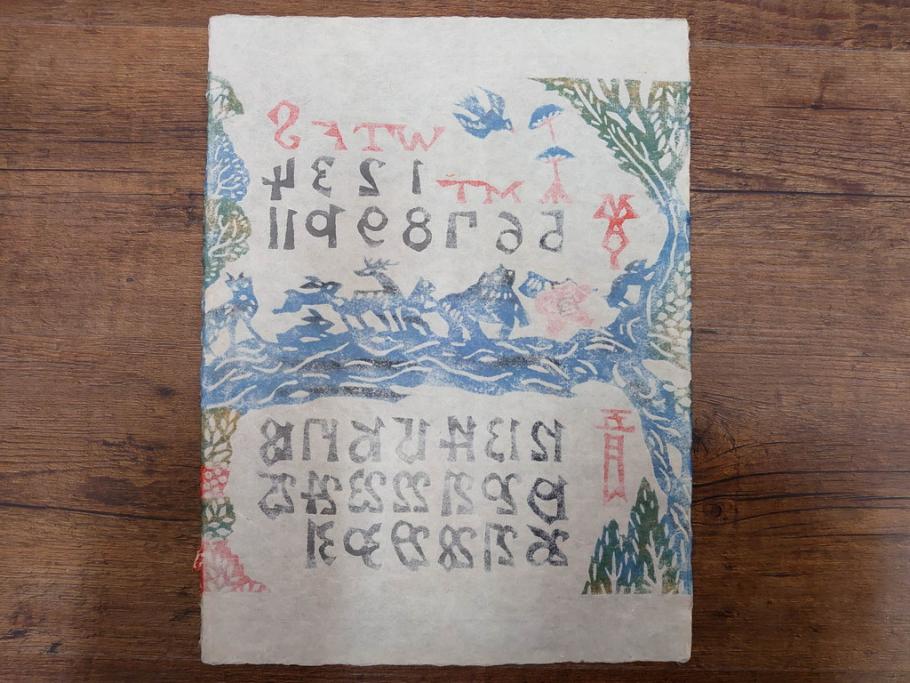 W T F S
M T 1 2 3 4
MAY
5 6 7 8 9 10 11
五月
12 13 14 15 16 17 18
19 20 21 22 23 24 25
26 27 28 29 30 31